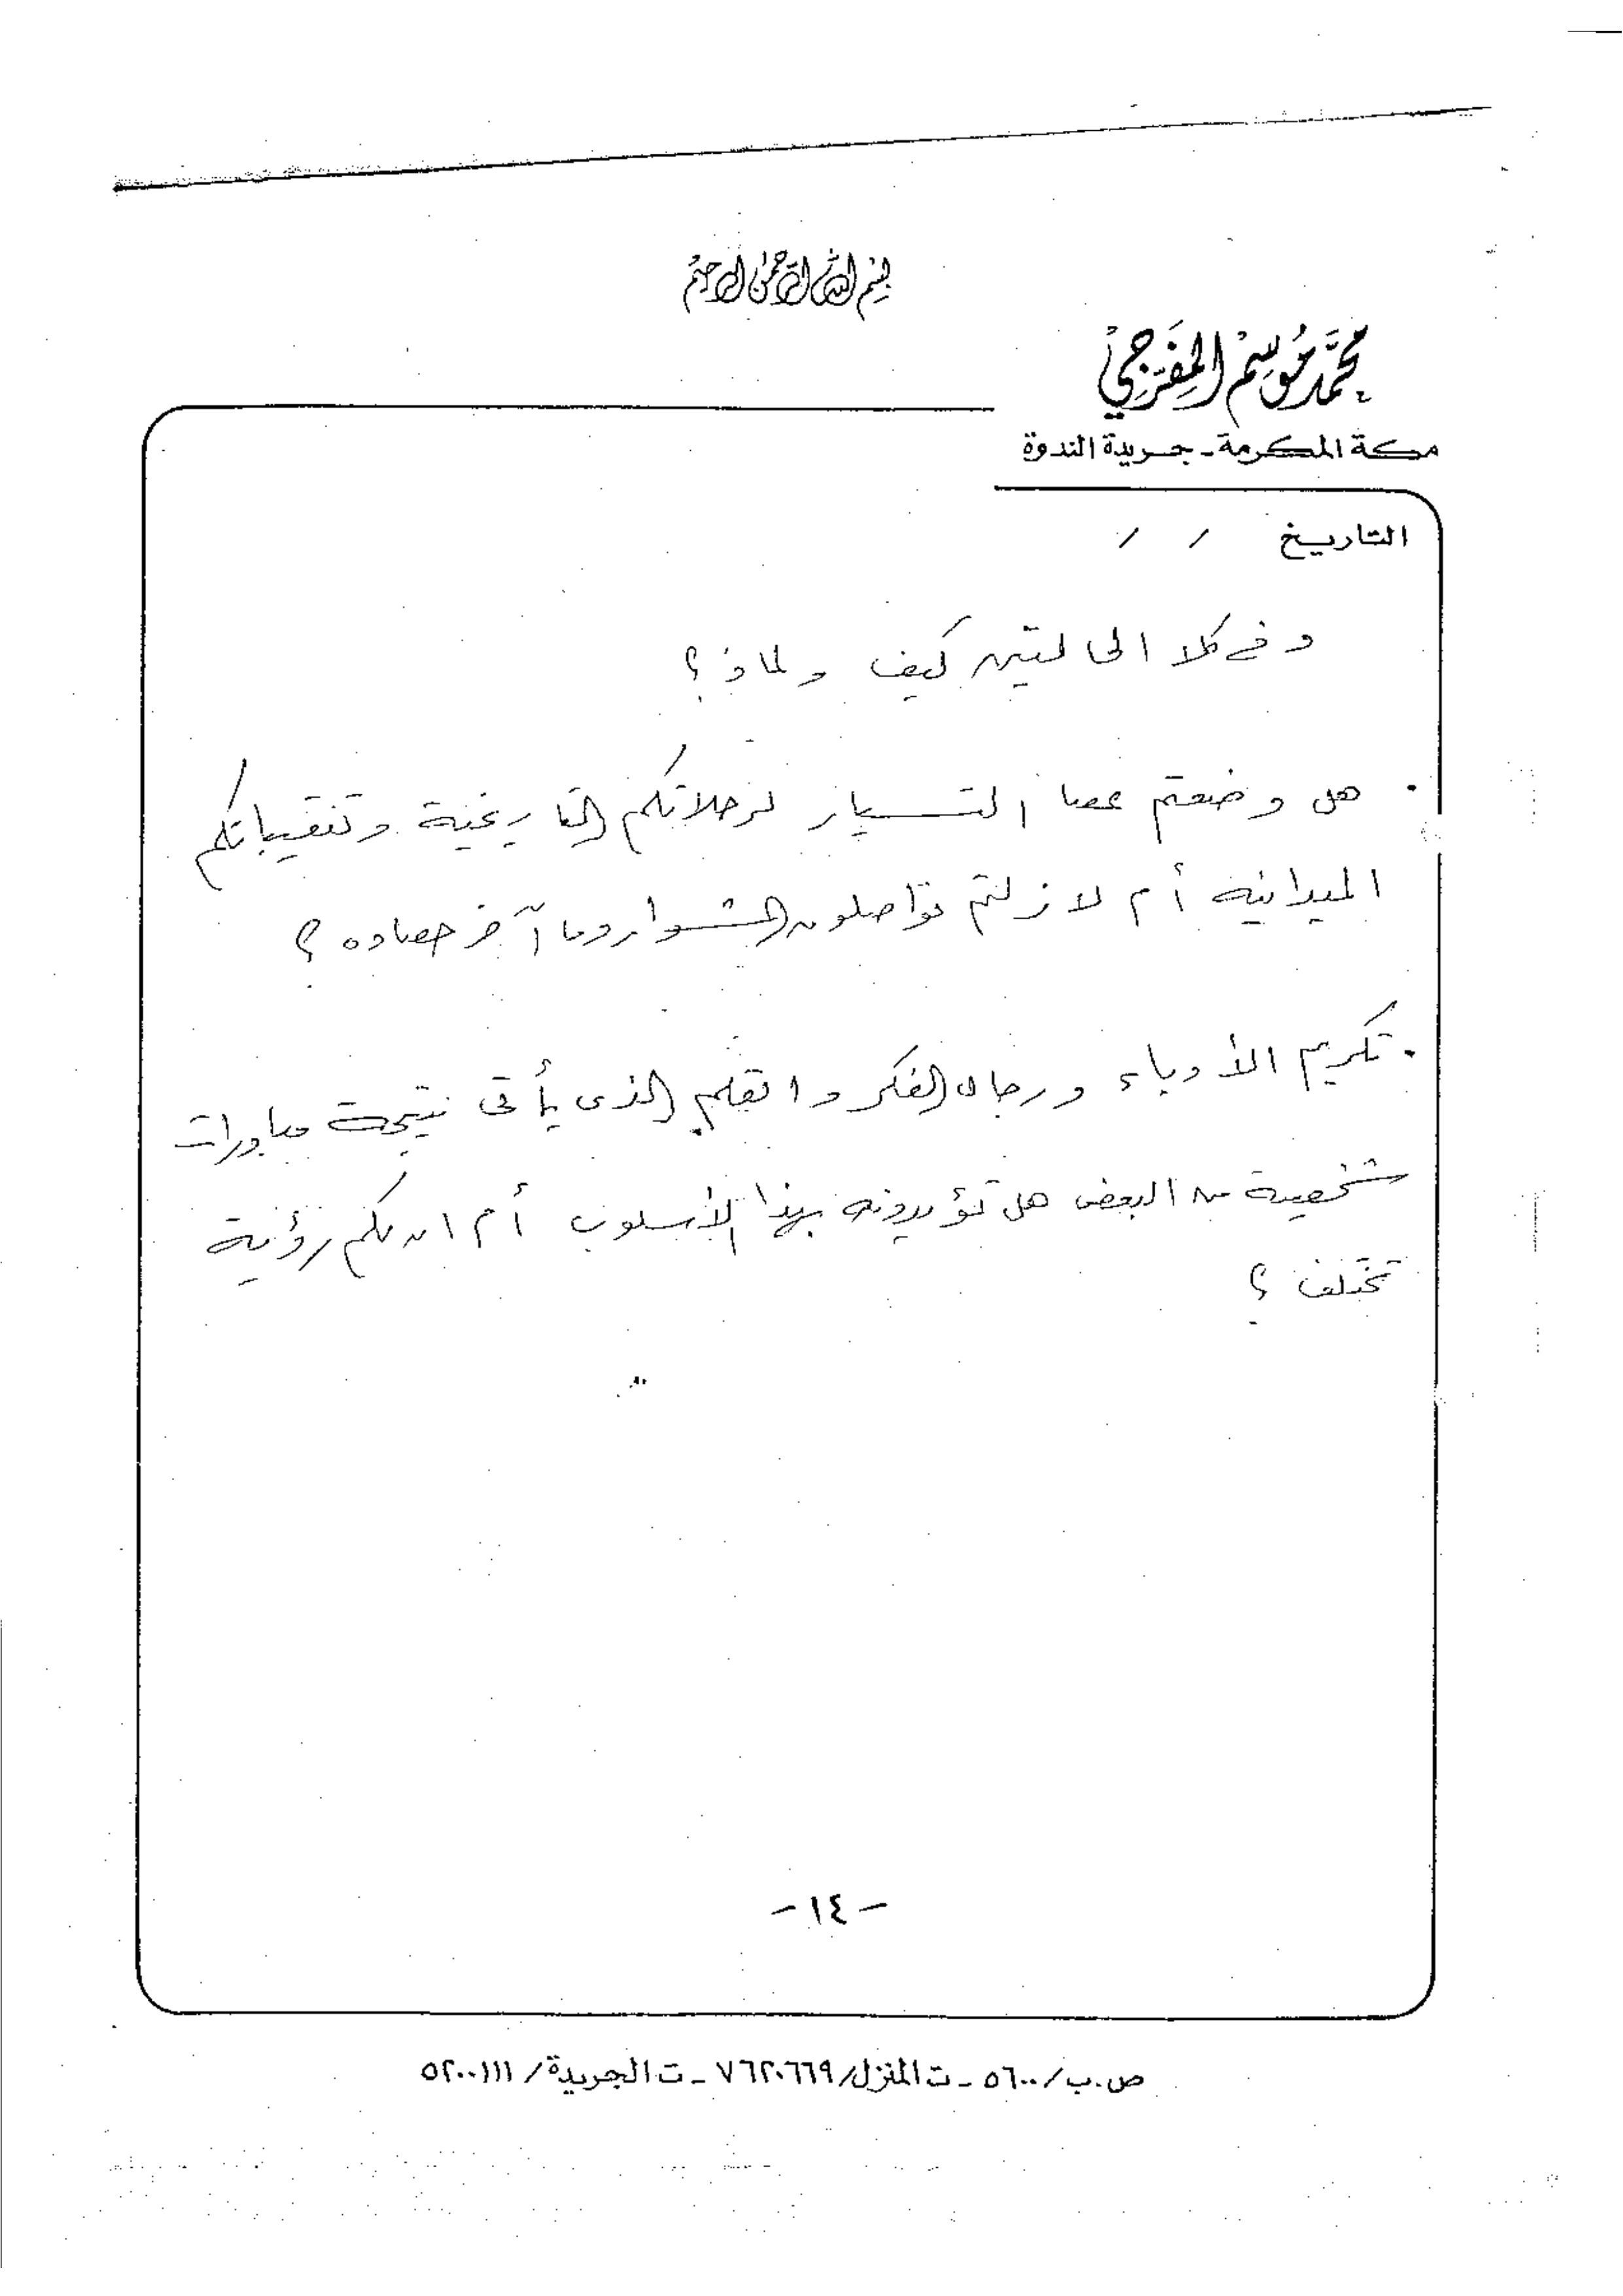 بسم الله الرحمن الرحيم
محمد موسم المفرجي
مكة المكرمة - جريدة الندوة
التاريخ / /
وفي كلا الحالتين كيف ولماذ؟
• هل وضعتم عصا التسيار لرحلاتكم التاريخية وتنقيباتكم
الميدانية أم لا زلتم تواصلون المشوار وما آخر حصاده ؟
• تكريم الأدباء ورجال الفكر والقلم الذى يأتى نتيجة مبادرات
شخصية من البعض هل تؤيدونه بهذا الأسلوب أم ان لكم رؤية
تختلف ؟
- ١٤ -
ص.ب/ ٥٦٠٠ - ت المنزل/ ٧٦٢٠٦٦٩ - ت الجريدة/ ٥٢٠٠١١١